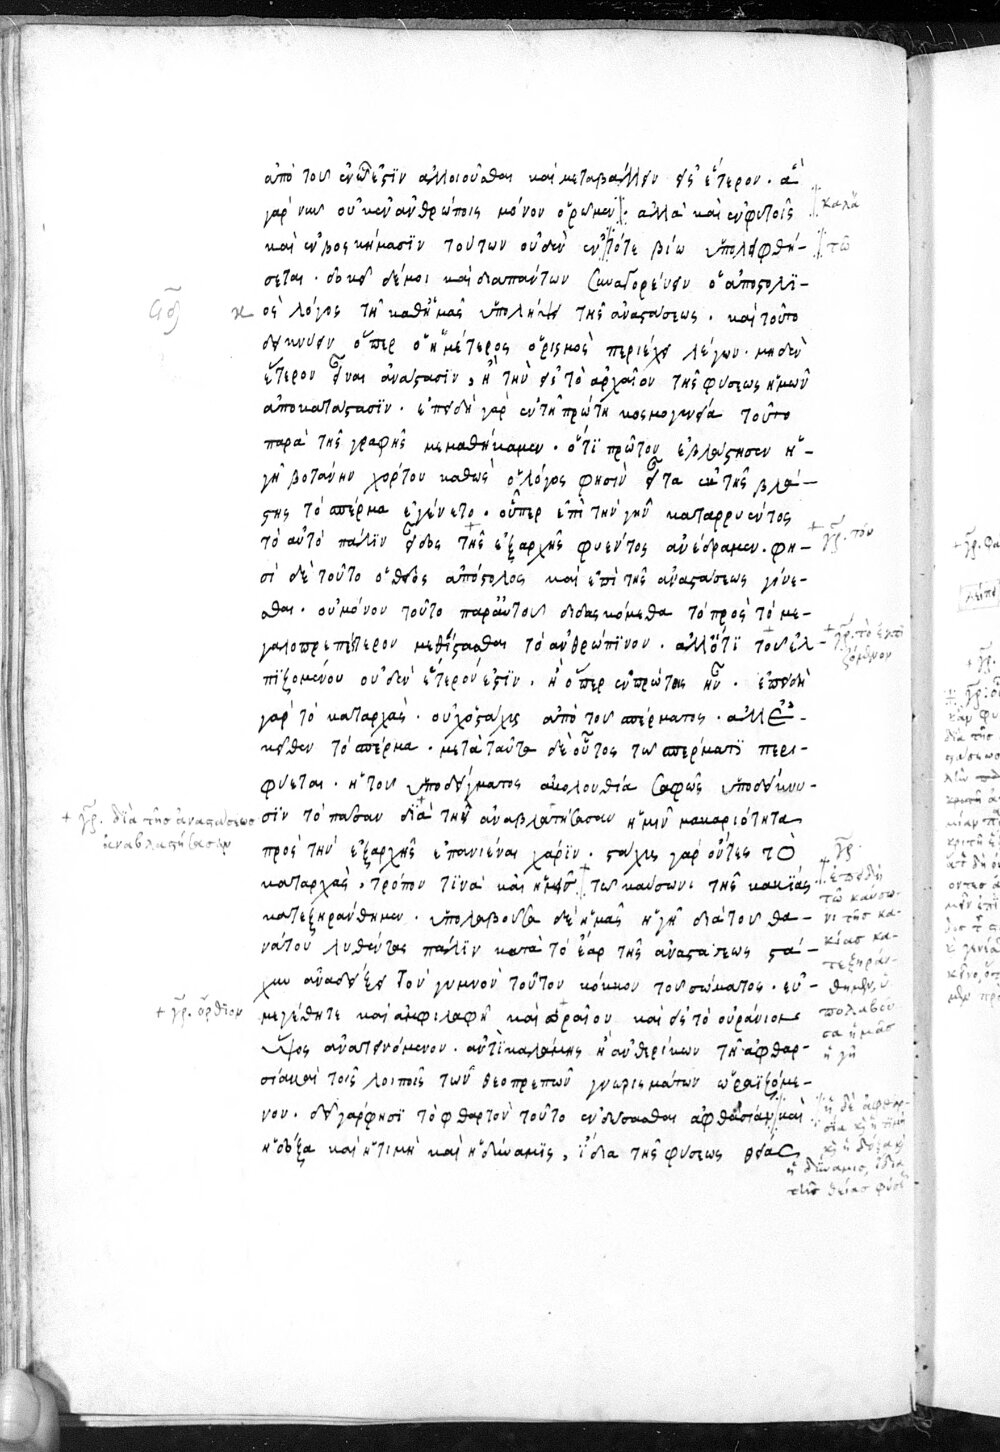 ἀπὸ του ἐνεστῶσϊν ἀλλοιοῦσθαι καὶ μεταβάλλειν εἰς ἕτερον. ἃ
γάρ νυν οὐκ ἐν ἀνθρώποις μόνον ὁρῶμεν. ἀλλὰ καὶ ἐν φυτοῖς
καὶ ἐν βοσκήμασϊν τούτων οὐδὲν ἐν τότε βίω ὑπολειφθή-
σεται. δοκεῖ δέ μοι καὶ διαπάντων συναγορεύειν ὁ ἀποστολϊ-
κος λόγος τῆ καθ ἡμᾶς ὑπολήψει τῆς ἀναστάσεως. καὶ τοῦτο
δεικνύειν ὅπερ ὁ ἡμέτερος ὁρισμὸς περιέχει λέγων. μηδὲν
ἕτερον εἶναι ἀνάστασϊν, ἢ τὴν εἰς τὸ ἀρχαῖον τῆς φύσεως ἡμῶν
ἀποκατάστασϊν. ἐπειδὴ γὰρ ἐν τῆ πρώτη κοσμογενεία τοῦτο
παρὰ τῆς γραφῆς μεμαθήκαμεν. ὅτϊ πρῶτον ἐβλάστησεν ἡ
γῆ βοτάνην χόρτου καθὼς ὁ λόγος φησὶν εἶτα ἐκ τῆς βλά-
στης τὸ σπέρμα ἐγένετο. οὗπερ ἐπὶ τὴν γῆν καταρρυέντος
τὸ αὐτὸ πάλϊν εἶδος τῆς ἐξαρχῆς φυέντος ἀνέδραμεν. φη-
σὶ δὲ τοῦτο ὁ θεῖος ἀπόστολος καὶ ἐπὶ τῆς ἀναστάσεως γίνε-
σθαι. οὐ μόνον τοῦτο παρ αὐτοῦ διδασκόμεθα τὸ πρὸς τὸ με-
γαλοπρεπέστερον μεθίστασθαι τὸ ἀνθρώπϊνον. ἀλλ ὅτϊ του ἐλ
πϊζομένου οὐδὲν ἕτερόν ἐστϊν. ἢ ὅπερ ἐν πρώτοις ἦν. ἐπειδὴ
γὰρ τὸ καταρχὰς. οὐχὁ στάχυς ἀπὸ του σπέρματος. ἀλλ ἐξ
κεῖθεν τὸ σπέρμα. μετὰ ταῦτα δὲ οὗτος τω σπέρματϊ περι-
φύεται. ἡ του ὑποδείγματος ἀκολουθία σαφῶς ὑποδείκνυ-
σϊν τὸ πᾶσαν διὰ τὴν ἀναβλαστήσασαν ἡμῖν μακαριότητα
πρὸς τὴν ἐξαρχῆς ἐπανιέναι χάρϊν. στάχυς γὰρ ὄντες τὸ
καταρχὰς, τρόπον τϊνὰ καὶ ἡμεῖς τω καύσωνι τῆς κακίας
κατεξηράνθημεν. ὑπολαβοῦσα δὲ ἡμᾶς ἡ γῆ διὰ του θα-
νάτου λυθέντας πάλϊν κατὰ τὸ ἔαρ τῆς ἀναστάσεως στά-
χυν ἀναδείξει τὸν γυμνὸν τοῦτον κόκκον του σώματος. εὐ-
μεγέθητε καὶ ἀμφιλαφῆ καὶ ὡραῖον καὶ εἰς τὸ οὐράνιον
ὕψος ἀνατεινόμενον. ἀντϊκαλάμης ἢ ἀνθερίκων τῆ ἀφθαρ-
σία καὶ τοῖς λοιποῖς των θεοπρεπῶν γνωρισμάτων ὡραϊζόμε-
νον. δεῖ γάρ φησϊ τὸ φθαρτὸν τοῦτο ἐνδύσασθαι ἀφθαρσίαν καὶ
ἡ δόξα καὶ ἡ τιμὴ καὶ ἡ δύναμϊς, ἴδια τῆς φύσεως θείας
καλῶ
τῶ
+ γρ. τόν
+ γρ. τὸ ἐλπι
ζόμενον
+ γρ. διὰ τῆς ἀναστάσεως
ἀναβλαστήσασαν
γρ.
ἐπειδὴ
τῶ καύσω-
νι τῆς κα-
κίας κα-
τεξηράν-
θημεν, ὑ
πολαβοῦ
σα ἡμᾶς
ἡ γῆ
+ γρ. ὄρθιον
ἡ δὲ ἀφθαρ-
σία κὶ ἡ τιμὴ
κὶ ἡ δόξα κὶ
ἡ δύναμις, ἴδια
τῆς θείας φύσε